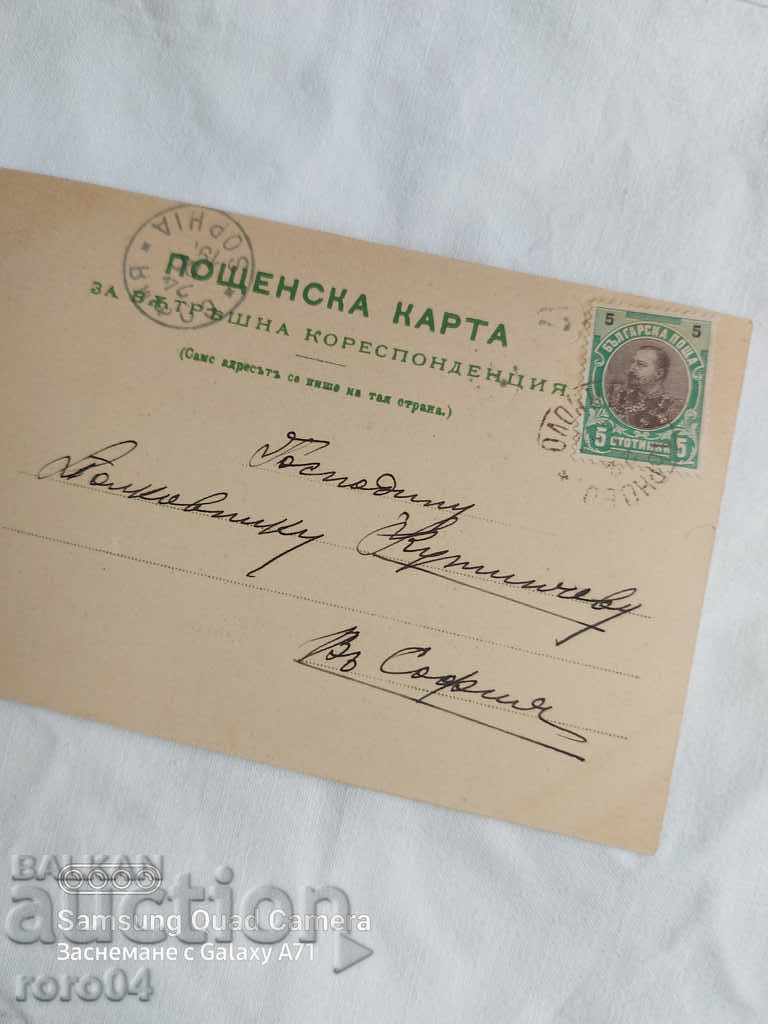 SOPHIA
24
ПОЩЕНСКА КАРТА
ЗА ВѪТРѢШНА КОРЕСПОНДЕНЦИЯ
(Само адресътъ се пише на тая страна.)
5 5
БЪЛГАРСКА ПОЩА
5 СТОТИНКИ 5
Господину
Полковнику Кутинчеву
Въ София
BALKAN
auction
Samsung Quad Camera
Заснемане с Galaxy A71
roro04